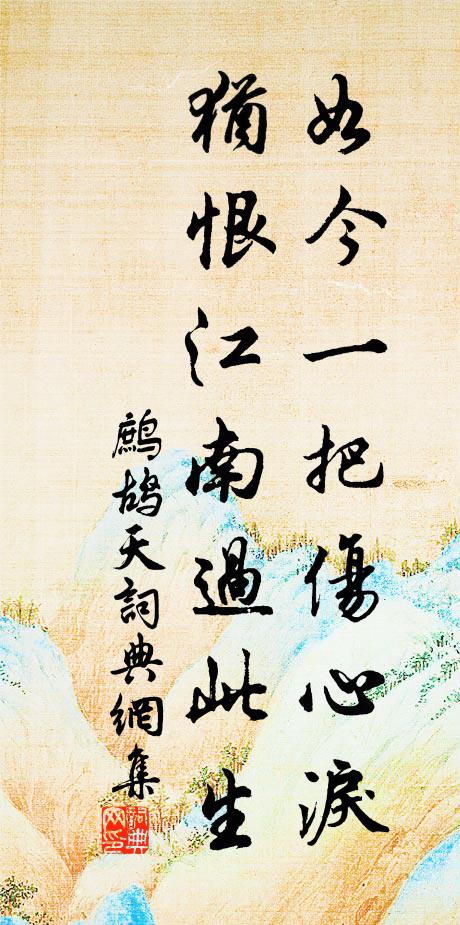 如今一把傷心淚
猶恨江南過此生
鷓鴣天詞典網集
詞典網印